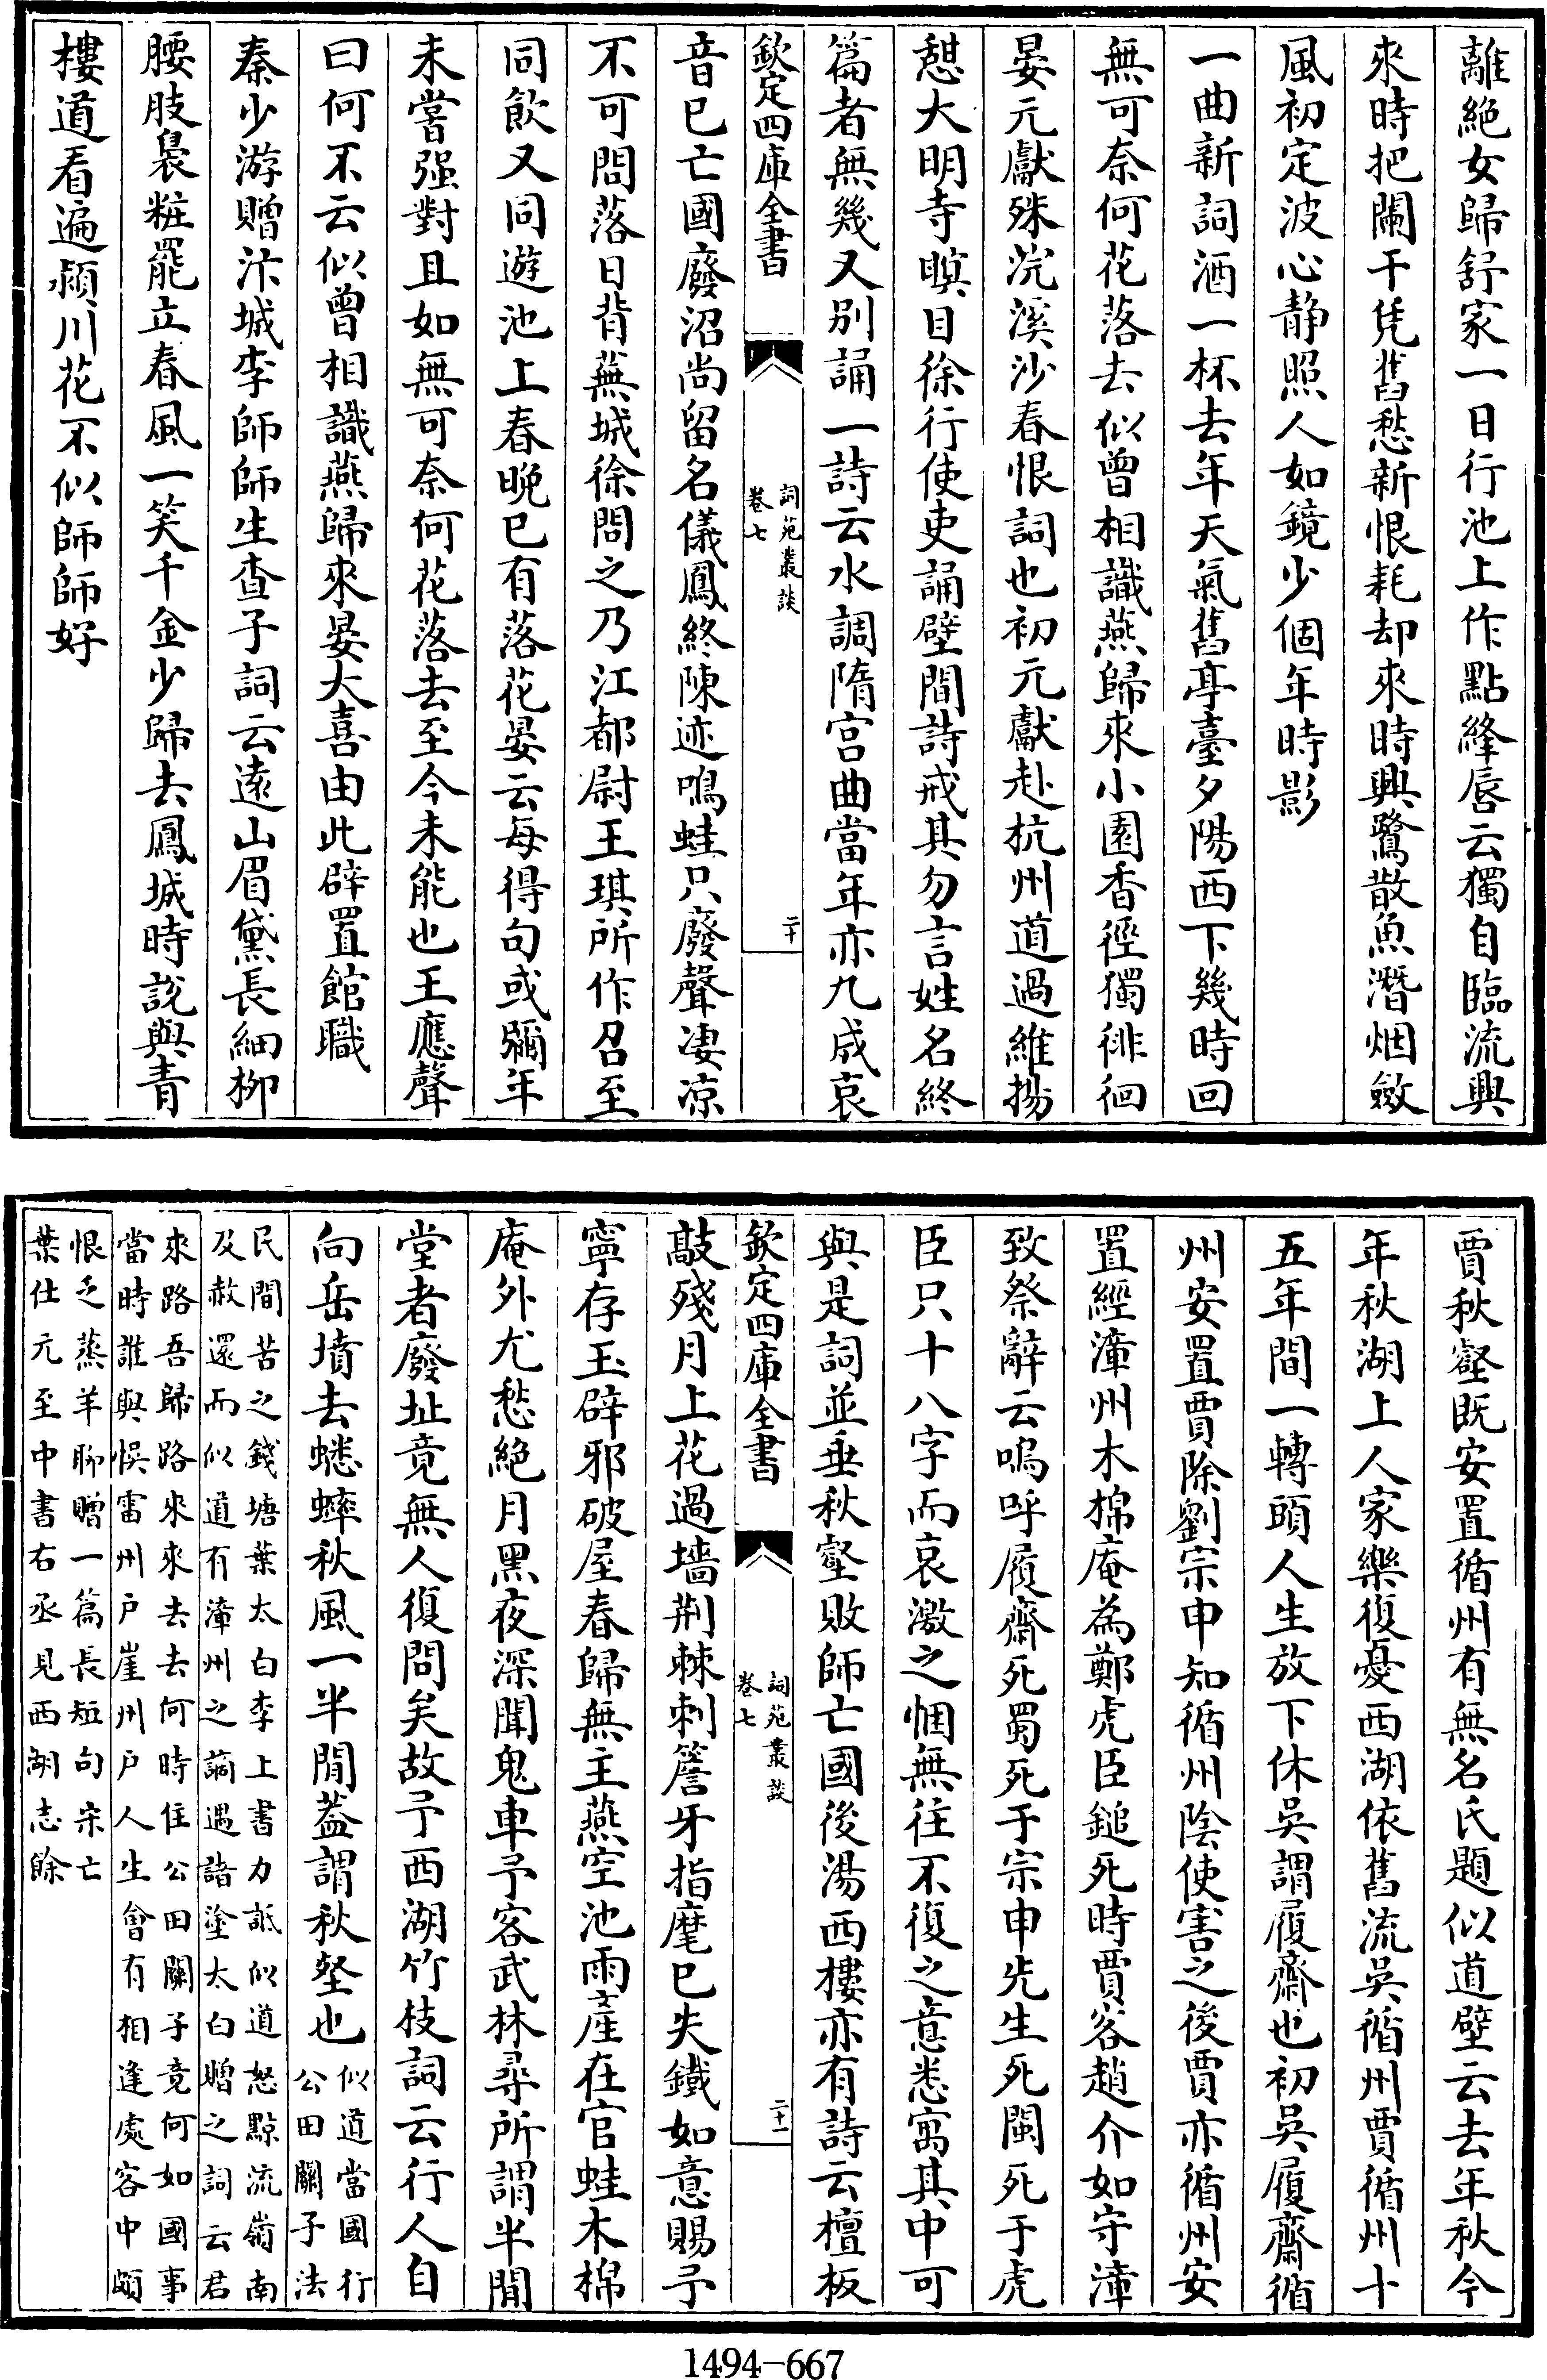 離絶女歸舒家一日行池上作點絳唇云獨自臨流興
來時把闌干凭舊愁新恨耗却來時興鷺散魚潛烟斂
風初定波心静照人如鏡少個年時影
一曲新詞酒一杯去年天氣舊亭臺夕陽西下幾時回
無可奈何花落去似曾相識燕歸來小園香徑獨徘徊
晏元獻殊浣溪沙春恨詞也初元獻赴杭州道過維揚
憇大明寺瞑目徐行使吏誦壁間詩戒其勿言姓名終
篇者無幾又别誦一詩云水調隋宫曲當年亦九成哀
欽定四庫全書
詞苑叢談
卷七
二十
音已亡國廢沼尚留名儀鳳終陳迹鳴蛙只廢聲凄凉
不可問落日背蕪城徐問之乃江都尉王琪所作召至
同飲又同遊池上春晚已有落花晏云每得句或彌年
未嘗强對且如無可奈何花落去至今未能也王應聲
曰何不云似曾相識燕歸來晏大喜由此辟置館職
秦少游贈汴城李師師生查子詞云遠山眉黛長細栁
腰肢裊粧罷立春風一笑千金少歸去鳳城時説與青
樓道看遍潁川花不似師師好
賈秋壑既安置循州有無名氏題似道壁云去年秋今
年秋湖上人家樂復憂西湖依舊流吳循州賈循州十
五年間一轉頭人生放下休吳謂履齋也初吳履齋循
州安置賈除劉宗申知循州陰使害之後賈亦循州安
置經漳州木棉庵為鄭虎臣鎚死時賈客趙介如守漳
致祭辭云嗚呼履齋死蜀死于宗申先生死閩死于虎
臣只十八字而哀激之悃無往不復之意悉寓其中可
與是詞並垂秋壑敗師亡國後湯西樓亦有詩云檀板
欽定四庫全書
詞苑叢談
卷七
二十一
敲殘月上花過墻荆棘刺簷牙指麾已失鐵如意賜予
寧存玉辟邪破屋春歸無主燕空池雨産在官蛙木棉
庵外尤愁絶月黑夜深聞鬼車予客武林尋所謂半閒
堂者廢址竟無人復問矣故予西湖竹枝詞云行人自
向岳墳去蟋蟀秋風一半閒葢謂秋壑也
似道當國行
公田關子法
民間苦之錢塘葉太白李上書力詆似道怒黥流嶺南
及赦還而似道有漳州之謫遇諸塗太白贈之詞云君
來路吾歸路來來去去何時住公田關子竟何如國事
當時誰與悞雷州户崖州户人生會有相逢處客中頗
恨乏蒸羊聊贈一篇長短句宋亡
葉仕元至中書右丞見西湖志餘
1494-667